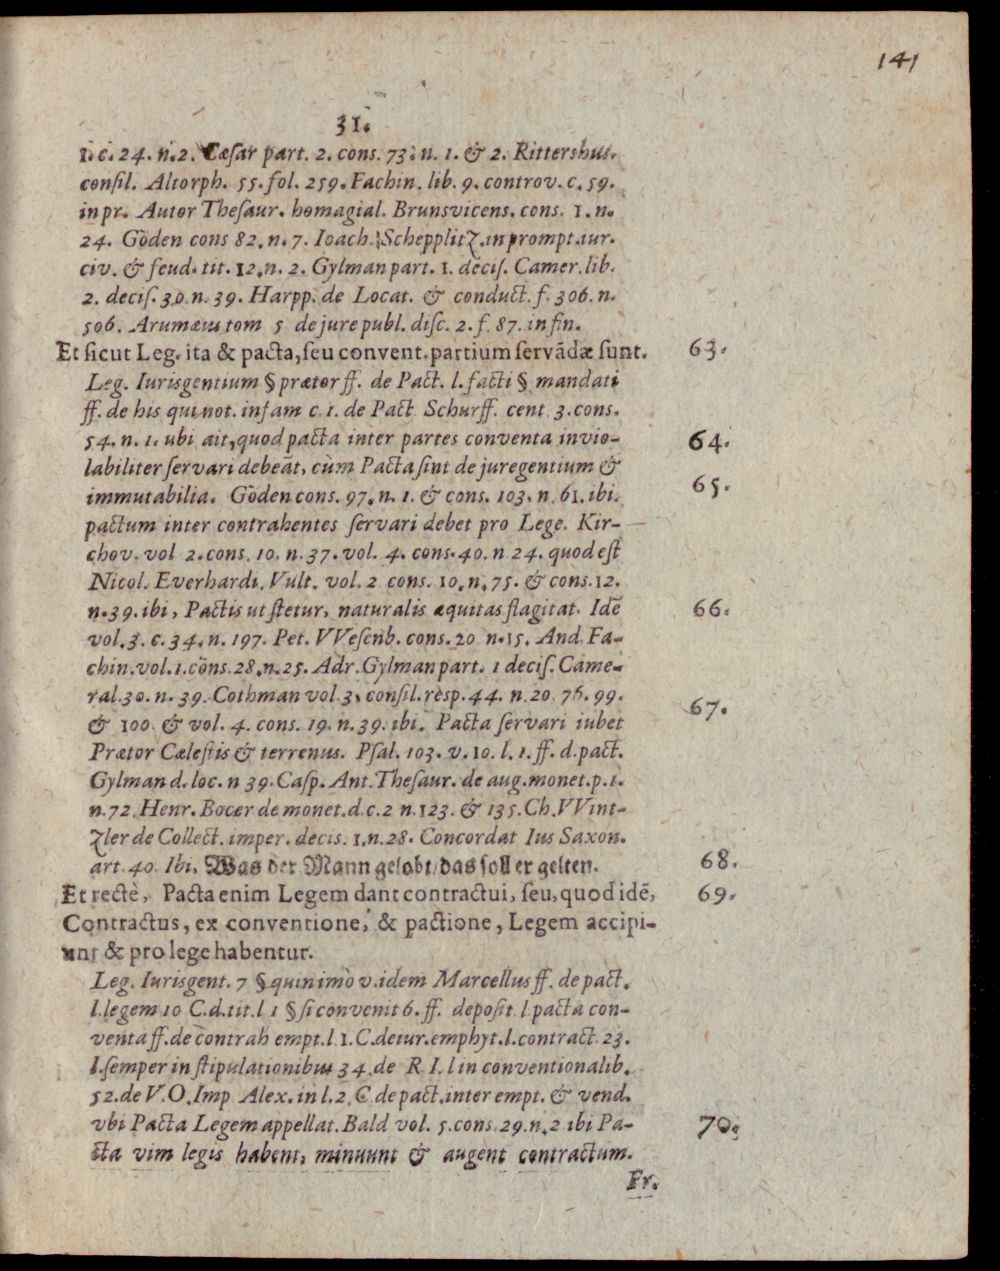 141
31.
1. c. 24. n. 2. Cæſar part. 2. cons. 73. n. 1. & 2. Rittershus.
conſil. Altorph. 55. fol. 259. Fachin. lib. 9. controv. c. 59.
in pr. Autor Theſaur. homagial. Brunsvicens. cons. 1. n.
24. Göden cons 82. n. 7. Ioach. Schepplitz. in prompt. iur.
civ. & feud. tit. 12. n. 2. Gylman part. 1. deciſ. Camer. lib.
2. deciſ. 30. n. 39. Harpp. de Locat. & conduct. f. 306. n.
506. Arumæus tom 5 de jure publ. diſc. 2. f. 87. in fin.
Et ſicut Leg. ita & pacta, ſeu convent. partium ſervãdæ ſunt. 63.
Leg. Iurisgentium § prætor ff. de Pact. l. facti § mandati
ff. de his qui not. infam c. 1. de Pact Schurff. cent 3. cons.
54. n. 1. ubi ait, quod pacta inter partes conventa invio- 64.
labiliter ſervari debeãt, cùm Pacta ſint de juregentium &
immutabilia. Göden cons. 97. n. 1. & cons. 103. n. 61. ibi. 65.
pactum inter contrahentes ſervari debet pro Lege. Kir-
chov. vol 2. cons. 10. n. 37. vol. 4. cons. 40. n 24. quod eſt
Nicol. Everhardi. Vult. vol. 2 cons. 10. n. 75. & cons. 12.
n. 39. ibi, Pactis ut ſtetur, naturalis æquitas flagitat. Idẽ 66.
vol. 3. c. 34. n. 197. Pet. VVeſenb. cons. 20 n. 15. And. Fa-
chin. vol. 1. cons. 28. n. 25. Adr. Gylman part. 1 deciſ. Came-
ral. 30. n. 39. Cothman vol 3. conſil. resp. 44. n. 20. 76. 99.
& 100. & vol. 4. cons. 19. n. 39. ibi. Pacta ſervari iubet 67.
Prætor Cæleſtis & terrenus. Pſal. 103. v. 10. l. 1. ff. d. pact.
Gylman d. loc. n 39. Caſp. Ant. Theſaur. de aug. monet. p. 1.
n. 72. Henr. Bocer de monet. d. c. 2 n. 123. & 135. Ch. VVint-
zler de Collect. imper. decis. 1. n. 28. Concordat Ius Saxon.
art. 40. Ibi. Was der Mann gelobt/ das ſoll er gelten. 68.
Et rectè, Pacta enim Legem dant contractui, ſeu, quod idẽ, 69.
Contractus, ex conventione, & pactione, Legem accipi-
unt & pro lege habentur.
Leg. Iurisgent. 7 § quinimò v. idem Marcellus ff. de pact.
l. legem 10 C. d. tit. l 1 § ſi convenit 6. ff. depoſit. l. pacta con-
venta ff. de contrah empt. l 1. C. de iur. emphyt. l. contract. 23.
l. ſemper in ſtipulationibus 34. de R. I. l in conventionalib.
52. de V. O. Imp Alex. in l. 2. C. de pact. inter empt. & vend.
vbi Pacta Legem appellat. Bald vol. 5. cons. 29. n. 2 ibi Pa- 70.
cta vim legis habent, minuunt & augent contractum.
Fr.